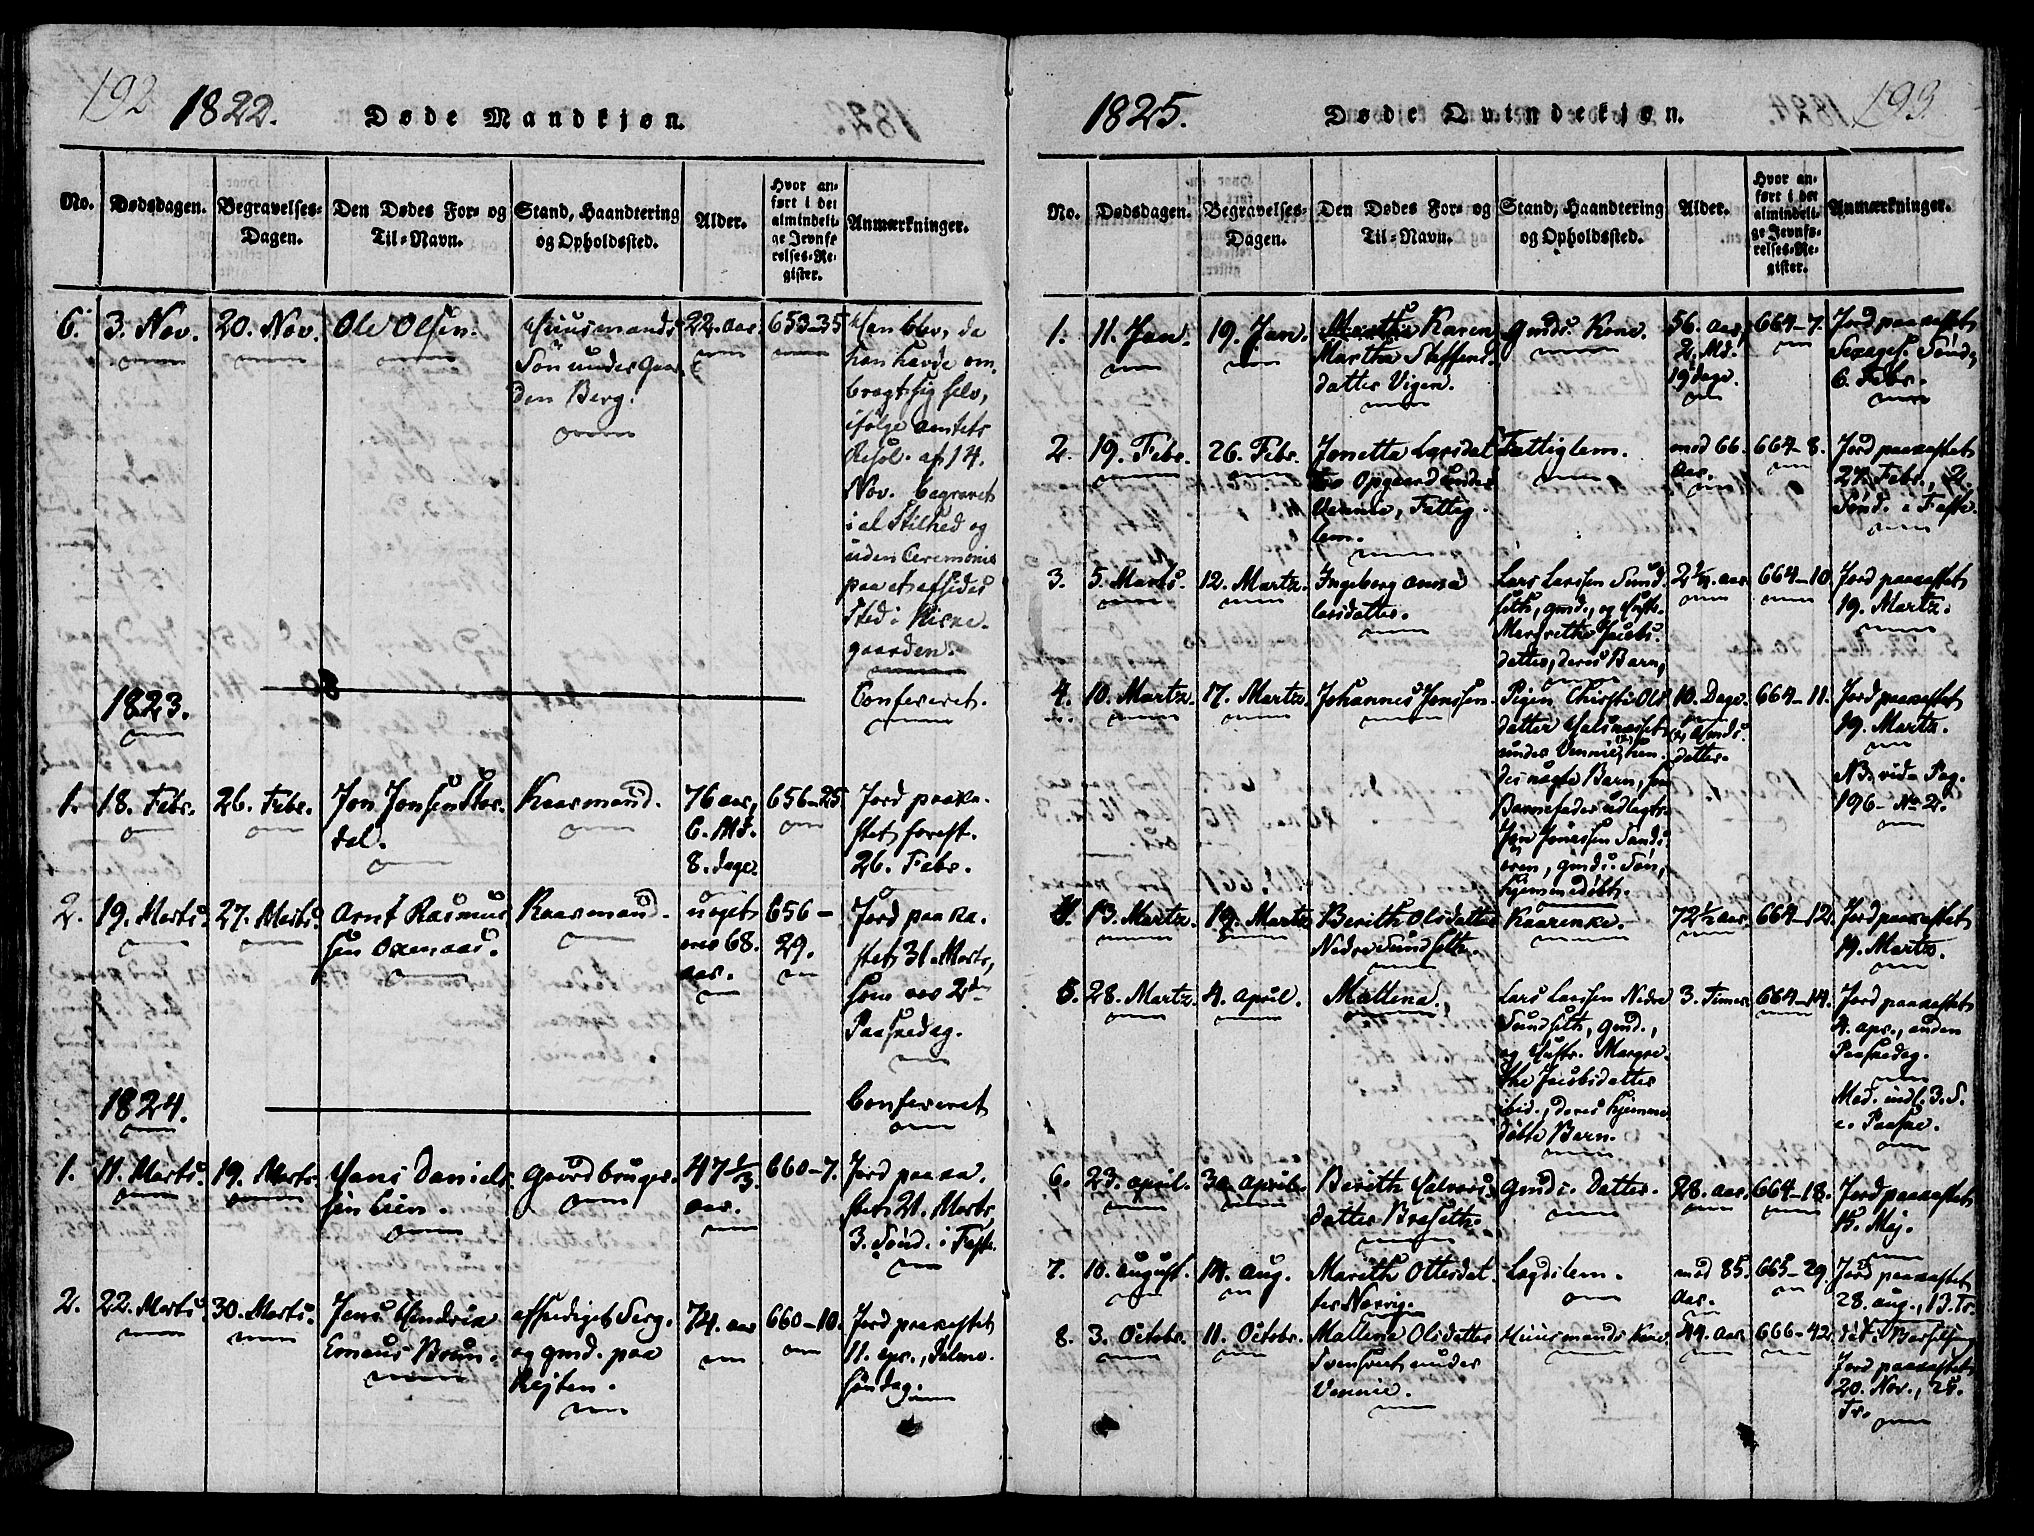 192
1822.
Døde Mandkjøn.
No.
Dødsdagen.
Begravelses-
Dagen.
Den Dødes For- og
Til-Navn.
Stand, Haandtering
og Opholdssted.
Alder.
Hvor an-
ført i det
almindeli-
ge Jevnfø-
relses-Re-
gister.
Anmærkninger.
6.
3. Nov.
20. Nov.
Ole Olsen.
Huusmands
Søn under Gaar-
den Berg.
22. aar.
653-35
Han blev, da
han havde om-
bragt sig selv,
ifølge amtets
Resol. af 14.
Nov. begravet
i al Stilhed og
uden Ceremonie
paa et afsides
Sted i Kirke-
gaarden.
Confereret.
1823.
1.
18. Febr.
26. Febr.
Jon Jonsen Stor-
dal.
Kaarmand.
76 aar,
6. Md.
8. dage.
656-25
Jord paaka-
stet forest.
26. Febr.
2.
19. Marts.
27. Marts.
Arnt Rasmus-
sen Oxenaas.
Kaarmand.
68.
aar.
656-
29.
Jord paaka-
stet 31. Marts,
som var 2den
Paaskedag.
Confereret
1824.
1.
11. Marts.
19. Marts.
Hans Daniel-
sen Lien.
Gaardbruger.
47 1/3.
aar.
660-7.
Jord paaka-
stet 21. Marts
3. Sønd. i Faste.
2.
22. Marts.
30. Marts.
Jens Hendric
Emaus Brun.
afskediget Serg.
og gmd. paa
Rejten.
74. aar
660-10.
Jord paakastet
11. apr., Palme-
søndag.
193
1825.
Døde Qvindekjøn.
No.
Dødsdagen.
Begravelses-
Dagen.
Den Dødes For- og
Til-Navn.
Stand, Haandtering
og Opholdssted.
Alder.
Hvor an-
ført i det
almindeli-
ge Jevnfø-
relses-Re-
gister.
Anmærkninger.
1.
11. Jan.
19. Jan.
Martha Karen
Martha Steffens-
datter Vigen.
Gmds. Kone.
56. aar,
2. Md.
19 dage.
664-7.
Jord paakastet
Sexages. Sønd,
6. Febr.
2.
19. Febr.
26. Febr.
Jonetta Larsdat-
ter Opgaard under
Vennie, Fattig-
lem.
Fattiglem.
mod 66.
aar.
664-8.
Jord paakastet
27. Febr., 2.
Sønd. i Faste.
3.
5. Marts.
12. Martz.
Ingeborg Anna
Larsdatter.
Lars Larsen Sund-
seth, gmd., og Hustr.
Margrethe Jacobs-
datter, deres Barn,
2 1/4. aar
664-10
Jord paakastet
19. Martz.
4.
10. Martz.
17. Martz.
Johannes Jonssen.
Pigen Christi Ols-
datter Halsnæset
under Vennie, hen-
des uægte Barn,
Barnefader udlagt:
Jon Jonassen Sands-
øren, gmds. Søn,
hjemmedøbt.
10. Dage.
datter.
664-11.
Jord paakastet
19. Martz.
NB. vide Pag.
196- No 2.
4.
13. Martz.
19. Martz
Berith Olsdatter
Nedre Sundseth.
Kaarenke.
72 1/2 aar.
664-12.
Jord paakastet
19. Martz.
5.
28. Martz.
4. April.
Mallena.
Lars Larsen Nedre
Sundseth, gmd.,
og Hustr. Margre-
the Jacobsdatter
ibid., deres hjemme-
døbte Barn.
3. Timer.
664-14.
Jord paakastet
4. apr., anden
Paaskedag.
Med. indl. 3. S.
e. Paaske.
6.
23. april.
30. aprili.
Berith Halvors-
datter Brasseth.
Gmds. Datter.
28. aar.
664-18.
Jord paakastet
15. Maj.
7.
10. august.
14. aug.
Marith Ottersdat-
ter Nærvig.
Lægdslem.
mod 85.
aar.
665-29.
Jord paakastet
28. aug., 13. Tr.
8.
3. Octobr.
11. Octobr.
Mallena Olsdatter
under
Vennie.
Huusmands Kone
44. aar.
666-42.
død i Barselseng
Jord paakastet
20. Nov., 25.
Tr.